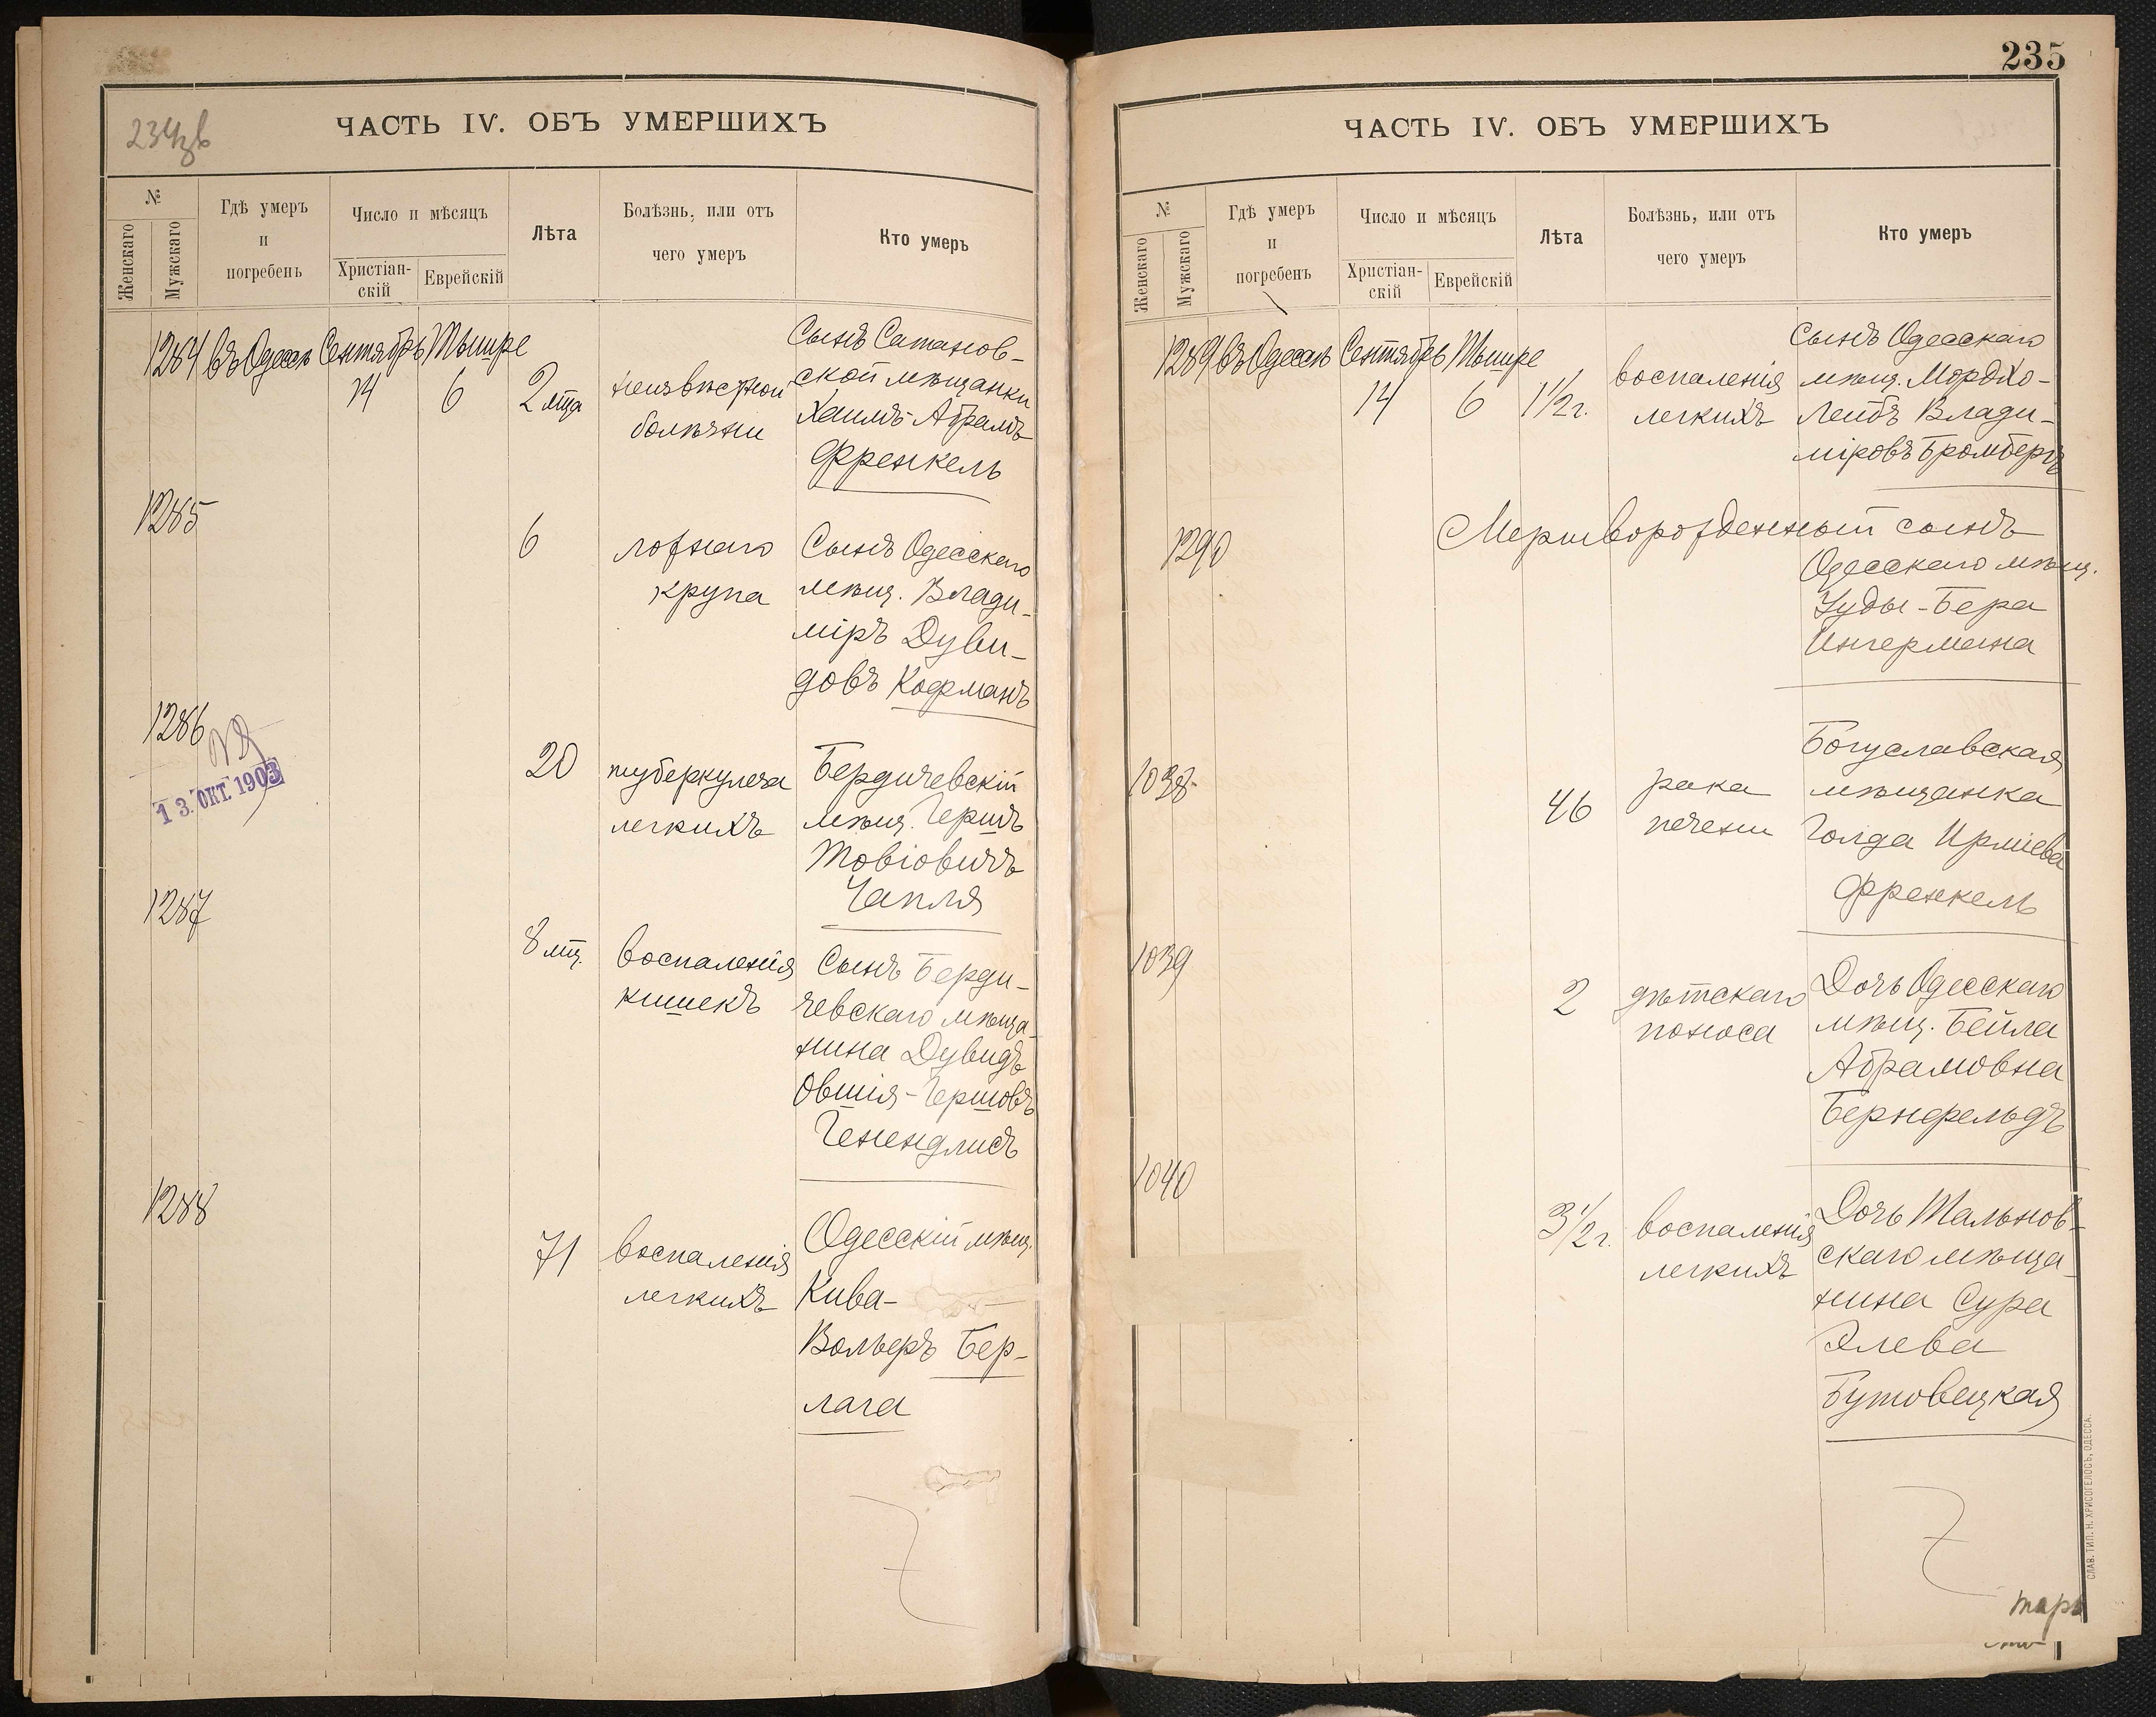 234 об
ЧАСТЬ IV. ОБЪ УМЕРШИХЪ
№
Женскаго
Мужскаго
Гдѣ умеръ
и
погребенъ
Число и мѣсяцъ
Христіан-
скій
Еврейскій
Лѣта
Болѣзнь, или отъ
чего умеръ
Кто умеръ
1284 въ Одессѣ Сентябрь Тышре
14 6 2 мца неизвѣстной
болѣзни
Сынъ Сатанов-
ской мѣщанки
Хаимъ-Абрамъ
Френкель
1285
6 ложнаго
крупа
Сынъ Одесскаго
мѣщ. Влади-
міръ Дуви-
довъ Кофманъ
1286
13. ОКТ. 1903
20 туберкулеза
легкихъ
Бердичевскій
мѣщ. Гершъ
Товіовичъ
Чапля
1287
8 мц. воспаленія
кишекъ
Сынъ Берди-
чевскаго мѣща-
нина Дувидъ
Овшія-Гершовъ
Генендлисъ
1288
71 воспаленія
легкихъ
Одесскій мѣщ.
Кива-
Вольеръ Бер-
лага
235
ЧАСТЬ IV. ОБЪ УМЕРШИХЪ
№
Женскаго
Мужскаго
Гдѣ умеръ
и
погребенъ
Число и мѣсяцъ
Христіан-
скій
Еврейскій
Лѣта
Болѣзнь, или отъ
чего умеръ
Кто умеръ
1289 въ Одессѣ Сентябрь Тышре
14 6 1½ г. воспаленія
легкихъ
Сынъ Одесскаго
мѣщ. Мордко-
Лейбъ Влади-
міровъ Бромбергъ
1290
Мертворожденный сынъ
Одесскаго мѣщ.
Іуды-Бера
Ингермана
1038
46 рака
печени
Богуславская
мѣщанка
Голда Ирміева
Френкель
1039
2 дѣтскаго
поноса
Дочь Одесскаго
мѣщ. Бейла
Абрамовна
Бернфельдъ
1040
3½ г. воспаленія
легкихъ
Дочь Тальнов-
скаго мѣща-
нина Сура
Элева
Бутовецкая
СЛАВ. ТИП. Н. ХРИСОГЕЛОСЪ, ОДЕССА.